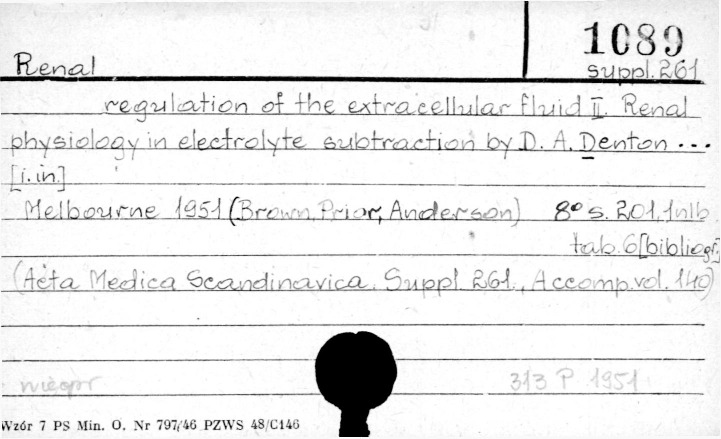 1089
suppl. 261
Renal
regulation of the extracellular fluid II. Renal
physiology in electrolyte subtraction by D. A. Denton ...
[i. in.]
Melbourne 1951 (Brown, Prior, Anderson) 8° s. 201, 1 nlb
tab. 6 [bibliogr.]
(Acta Medica Scandinavica. Suppl 261., Accomp. vol. 140)
313 P 1951
Wzór 7 PS Min. O. Nr 797/46 PZWS 48/C146